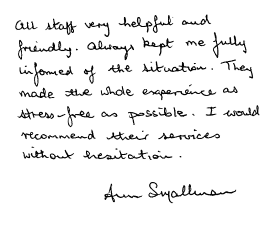 All staff very helpful and
friendly. Always kept me fully
informed of the situation. They
made the whole experience as
stress-free as possible. I would
recommend their services
without hesitation.
Ann Smallman